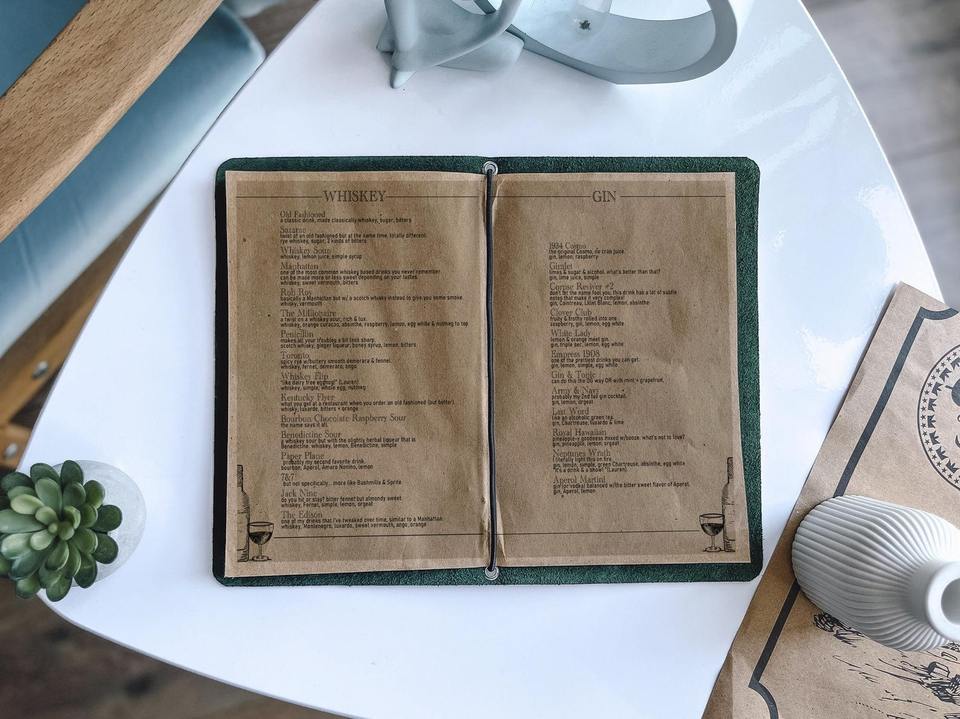 WHISKEY
Old Fashioned
a classic drink, made classically whiskey, sugar, bitters
Sazarac
twist of an old fashioned but at the same time, totally different.
rye whiskey, sugar, 2 kinds of bitters
Whiskey Sour
whiskey, lemon juice, simple syrup
Manhattan
one of the most common whiskey based drinks you never remember
can be made more or less sweet depending on your tastes.
whiskey, sweet vermouth, bitters
Rob Roy
basically a Manhattan but w/ a scotch whisky instead to give you some smoke
whisky, vermouth
The Millionaire
a twist on a whiskey sour, rich & lux.
whiskey, orange curacao, absinthe, raspberry, lemon, egg white & nutmeg to top
Penicillin
makes all your troubles a bit look sharp.
scotch whisky, ginger liqueur, honey syrup, lemon, bitters
Toronto
spicy rye w/buttery smooth demerara & fennel.
whiskey, fernet, demerara, ango
Whiskey Flip
"like dairy free eggnog!" (Lauren)
whiskey, simple, whole egg, nutmeg
Kentucky Flyer
what you get at a restaurant when you order an old fashioned (but better)
whisky, luxardo, bitters + orange
Bourbon Chocolate Raspberry Sour
the name says it all.
Benedictine Sour
a whiskey sour but with the slightly herbal liqueur that is
Benedictine. whiskey, lemon, Benedictine, simple
Paper Plane
probably my second favorite drink.
bourbon, Aperol, Amaro Nonino, lemon
7&7
but not specifically... more like Bushmills & Sprite
Jack Nine
do you hit or stay? bitter fennel but almondy sweet
whiskey, Fernet, simple, lemon, orgeat
The Edison
one of my drinks that I've tweaked over time, similar to a Manhattan
whiskey, Montenegro, luxardo, sweet vermouth, ango, orange
GIN
1934 Cosmo
the original Cosmo, no cran juice.
gin, lemon, raspberry
Gimlet
limes & sugar & alcohol, what's better than that?
gin, lime juice, simple
Corpse Reviver #2
don't let the name fool you, this drink has a lot of subtle
notes that make it very complex!
gin, Cointreau, Lillet Blanc, lemon, absinthe
Clover Club
fruity & frothy rolled into one
raspberry, gin, lemon, egg white
White Lady
lemon & orange meet gin.
gin, triple sec, lemon, egg white
Empress 1908
one of the prettiest drinks you can get.
gin, lemon, simple, egg white
Gin & Tonic
can do this the OG way OR with mint + grapefruit,
Army & Navy
probably my 2nd fall gin cocktail.
gin, lemon, orgeat
Last Word
like an alcoholic green tea.
gin, Chartreuse, luxardo & lime
Royal Hawaiian
pineapple-y goodness mixed w/booze. what's not to love?
gin, pineapple, lemon, orgeat
Neptunes Wrath
I literally light this on fire.
gin, lemon, simple, green Chartreuse, absinthe, egg white
"it's a drink & a show!" (Lauren)
Aperol Martini
gin (or vodka) balanced w/the bitter sweet flavor of Aperol.
gin, Aperol, lemon